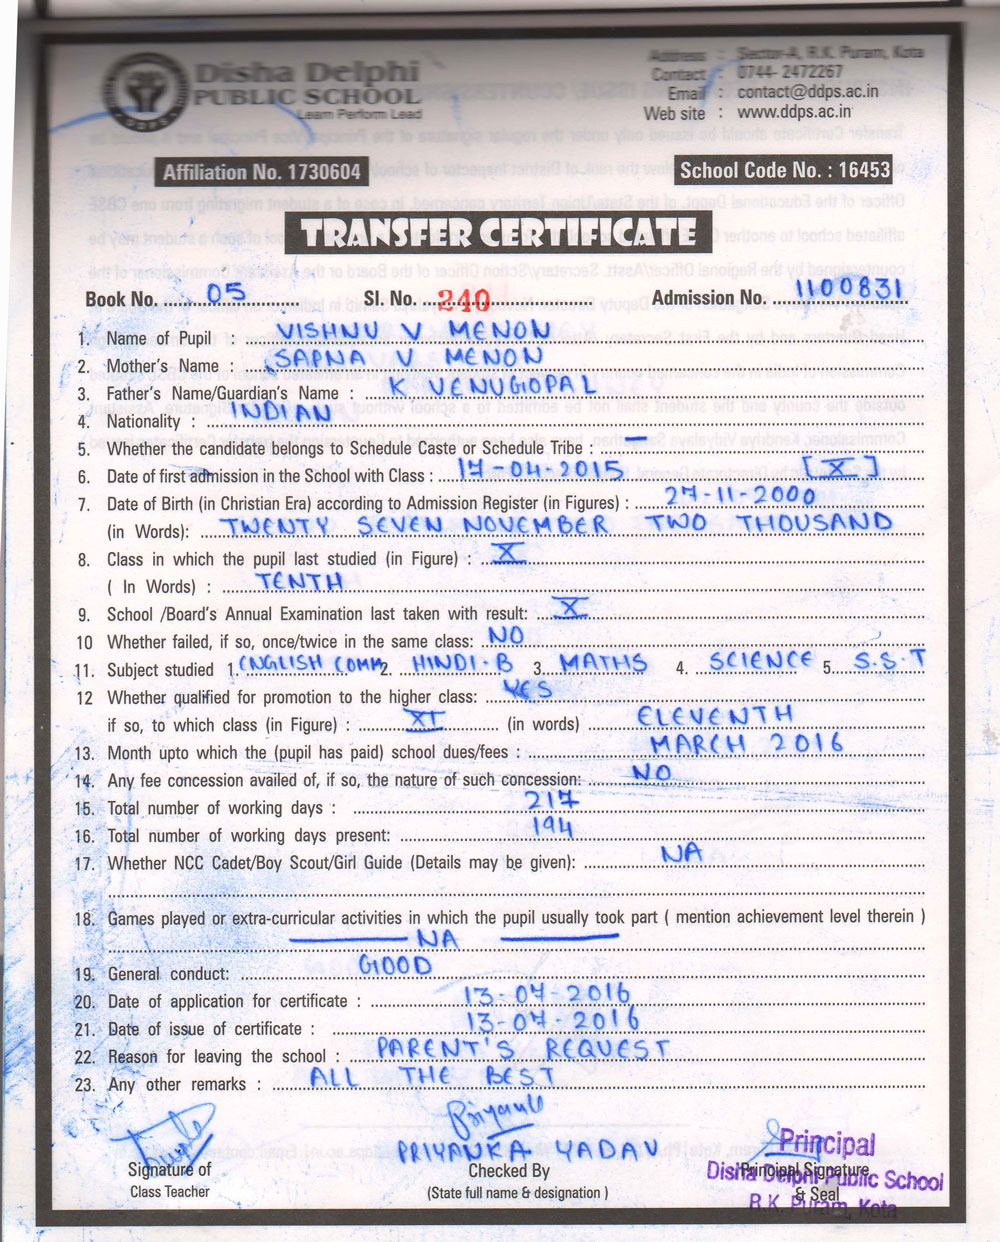 Disha Delphi
PUBLIC SCHOOL
Learn Perform Lead
DDPS
Address : Sector-A, R.K. Puram, Kota
Contact : 0744- 2472267
Email : contact@ddps.ac.in
Web site : www.ddps.ac.in
Affiliation No. 1730604
School Code No. : 16453
TRANSFER CERTIFICATE
Book No. 05 Sl. No. 240 Admission No. 1100831
1. Name of Pupil : VISHNU V MENON
2. Mother's Name : SAPNA V MENON
3. Father's Name/Guardian's Name : K VENUGOPAL
4. Nationality : INDIAN
5. Whether the candidate belongs to Schedule Caste or Schedule Tribe : —
6. Date of first admission in the School with Class : 17-04-2015 [X]
7. Date of Birth (in Christian Era) according to Admission Register (in Figures) : 27-11-2000
(in Words): TWENTY SEVEN NOVEMBER TWO THOUSAND
8. Class in which the pupil last studied (in Figure) : X
( In Words) : TENTH
9. School /Board's Annual Examination last taken with result: X
10 Whether failed, if so, once/twice in the same class: NO
11. Subject studied 1. ENGLISH COMM 2. HINDI-B 3. MATHS 4. SCIENCE 5. S.S.T
12 Whether qualified for promotion to the higher class: YES
if so, to which class (in Figure) : XI (in words) ELEVENTH
13. Month upto which the (pupil has paid) school dues/fees : MARCH 2016
14. Any fee concession availed of, if so, the nature of such concession: NO
15. Total number of working days : 217
16. Total number of working days present: 194
17. Whether NCC Cadet/Boy Scout/Girl Guide (Details may be given): NA
18. Games played or extra-curricular activities in which the pupil usually took part ( mention achievement level therein )
— NA —
19. General conduct: GOOD
20. Date of application for certificate : 13-07-2016
21. Date of issue of certificate : 13-07-2016
22. Reason for leaving the school : PARENT'S REQUEST
23. Any other remarks : ALL THE BEST
Priyanka
PRIYANKA YADAV
Signature of
Class Teacher
Checked By
(State full name & designation )
Principal Signature
& Seal
Principal
Disha Delphi Public School
R.K. Puram, Kota